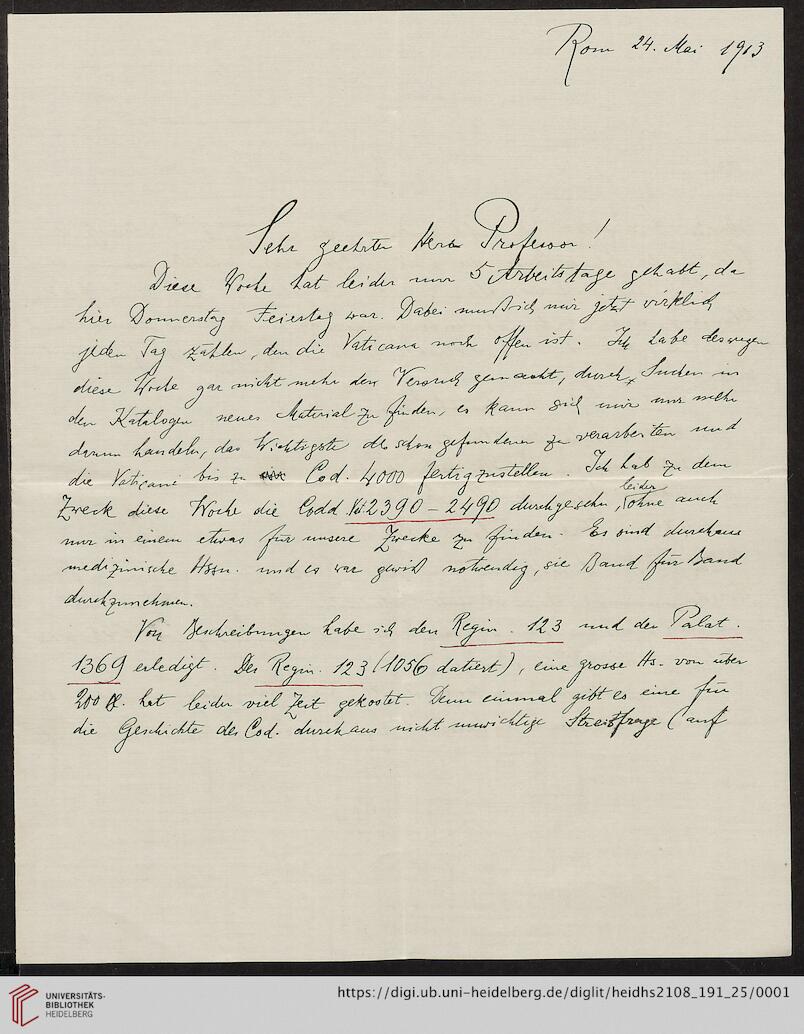 Rom 24. Mai 1913
Sehr geehrter Herr Professor!
Diese Woche hat leider nur 5 Arbeitstage gehabt, da
hier Donnerstag Feiertag war. Dabei muß ich mir jetzt wirklich
jeden Tag zählen, den die Vaticana noch offen ist. Ich habe deswegen
diese Woche gar nicht mehr den Versuch gemacht, durch Suchen in
den Katalogen neues Material zu finden, es kann sich mir nur mehr
darum handeln, das Wichtigste des schon gefundenen zu verarbeiten und
die Vaticani bis zu Cod. 4000 fertigzustellen. Ich hab zu dem
Zweck diese Woche die Codd. Vat. 2390 – 2490 durchgesehn, leider ohne auch
nur in einem etwas für unsere Zwecke zu finden. Es sind durchaus
medizinische Hssn. und es war gewiß notwendig, sie Band für Band
durchzunehmen.
Von Beschreibungen habe ich den Regin. 123 und den Palat.
1369 erledigt. Der Regin. 123 (1056 datiert), eine grosse Hs. von über
200 ff. hat leider viel Zeit gekostet. Denn einmal gibt es eine für
die Geschichte des Cod. durchaus nicht unwichtige Streitfrage (auf
UNIVERSITÄTS-
BIBLIOTHEK
HEIDELBERG
https://digi.ub.uni-heidelberg.de/diglit/heidhs2108_191_25/0001